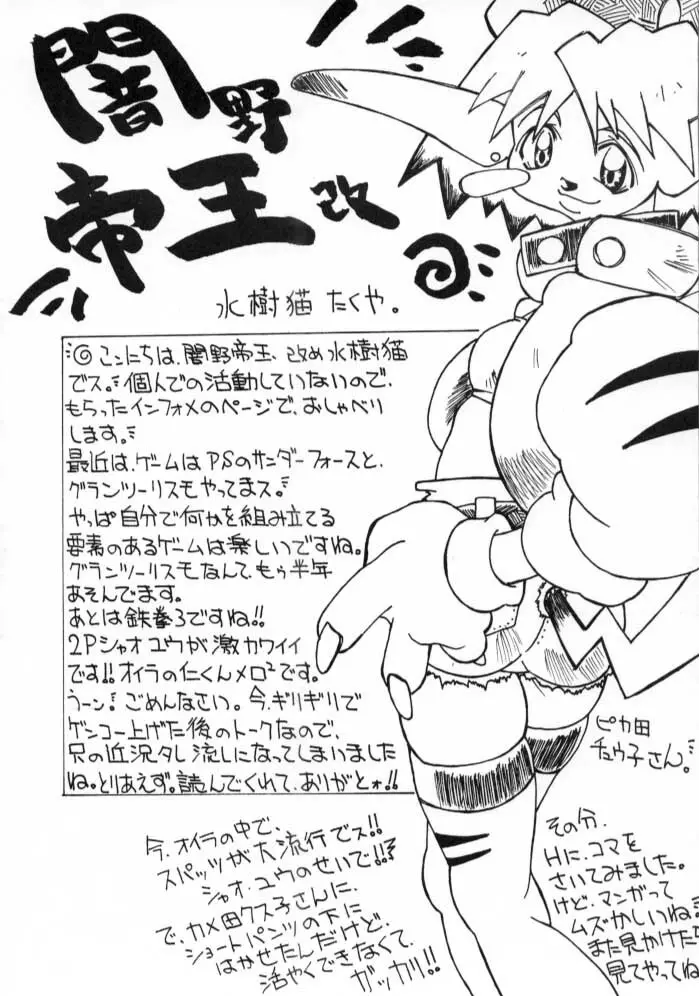 闇野
帝王改
水樹猫 たくや。
◎こンにちは、闇野帝王、改め水樹猫
でス。個人での活動していないので、
もらったインフォメのページで、おしゃべり
します。
最近は、ゲームはPSのサンダーフォースと、
グランツーリスモやってまス。
やっぱ自分で何かを組み立てる
要素のあるゲームは楽しいですね。
グランツーリスモなんて、もう半年
あそんでます。
あとは鉄拳3ですね!!
2Pシャオユウが激カワイイ
です!!オイラの仁くんメロ²です。
うーン!ごめんなさい。今、ギリギリで
ゲンコー上げた後のトークなので、
只の近況タレ流しになってしまいました
ね。とりあえず。読んでくれて、ありがとォ!!
ピカ田
チュウ子さん。
今、オイラの中で、
スパッツが大流行でス!!
シャオ・ユウのせいで!!
で、カメ田クス子さんに、
ショートパンツの下に
はかせたんだけど、
活やくできなくて、
ガッカリ!!
その分、
Hに、コマを
さいてみました。
けど、マンガって
ムズかしいね。
また見かけたら
見てやってね